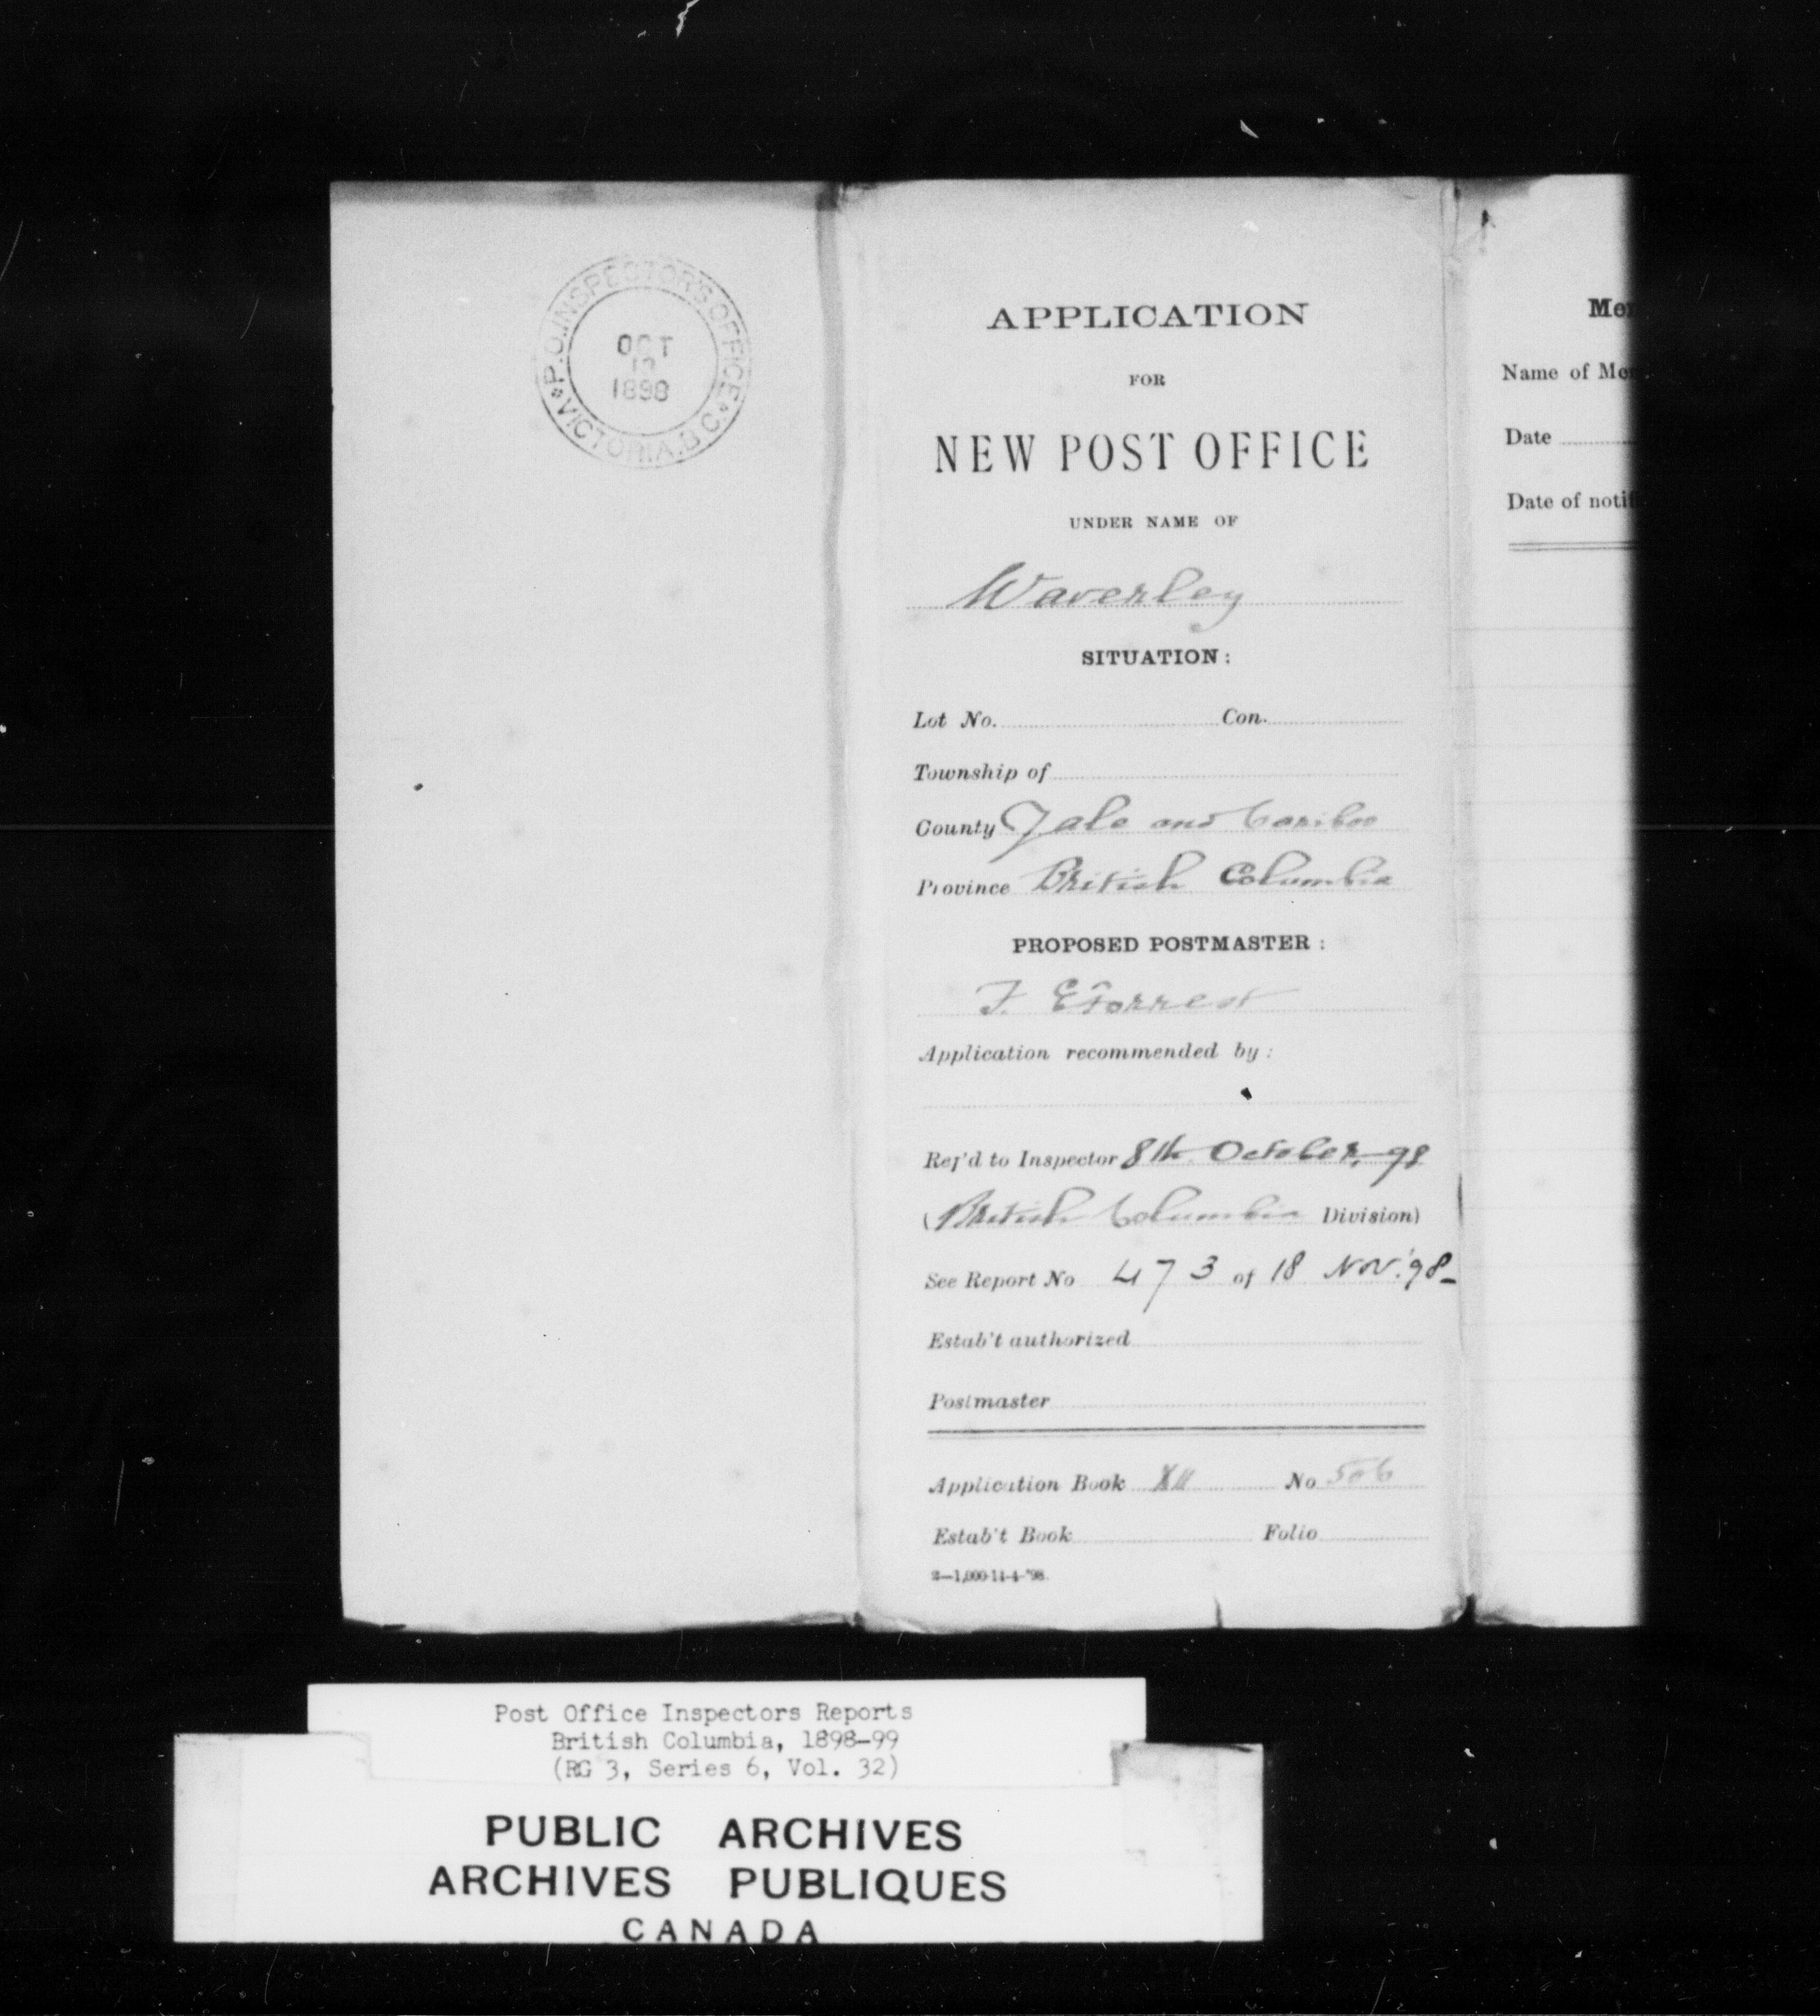 P.O. INSPECTOR'S OFFICE
VICTORIA, B.C.
OCT
1898
APPLICATION
FOR
NEW POST OFFICE
UNDER NAME OF
Waverley
SITUATION:
Lot No. Con.
Township of
County Yale and Cariboo
Province British Columbia
PROPOSED POSTMASTER:
F. E Forrest
Application recommended by:
Ref'd to Inspector 8th October, 98
(British Columbia Division)
See Report No 473 of 18 Nov. '98
Estab't authorized
Postmaster
Application Book XII No 506
Estab't Book Folio
2—1,000-14-4-'98.
Name of
Date
Date of
Post Office Inspectors Reports
British Columbia, 1898-99
(RG 3, Series 6, Vol. 32)
PUBLIC ARCHIVES
ARCHIVES PUBLIQUES
CANADA